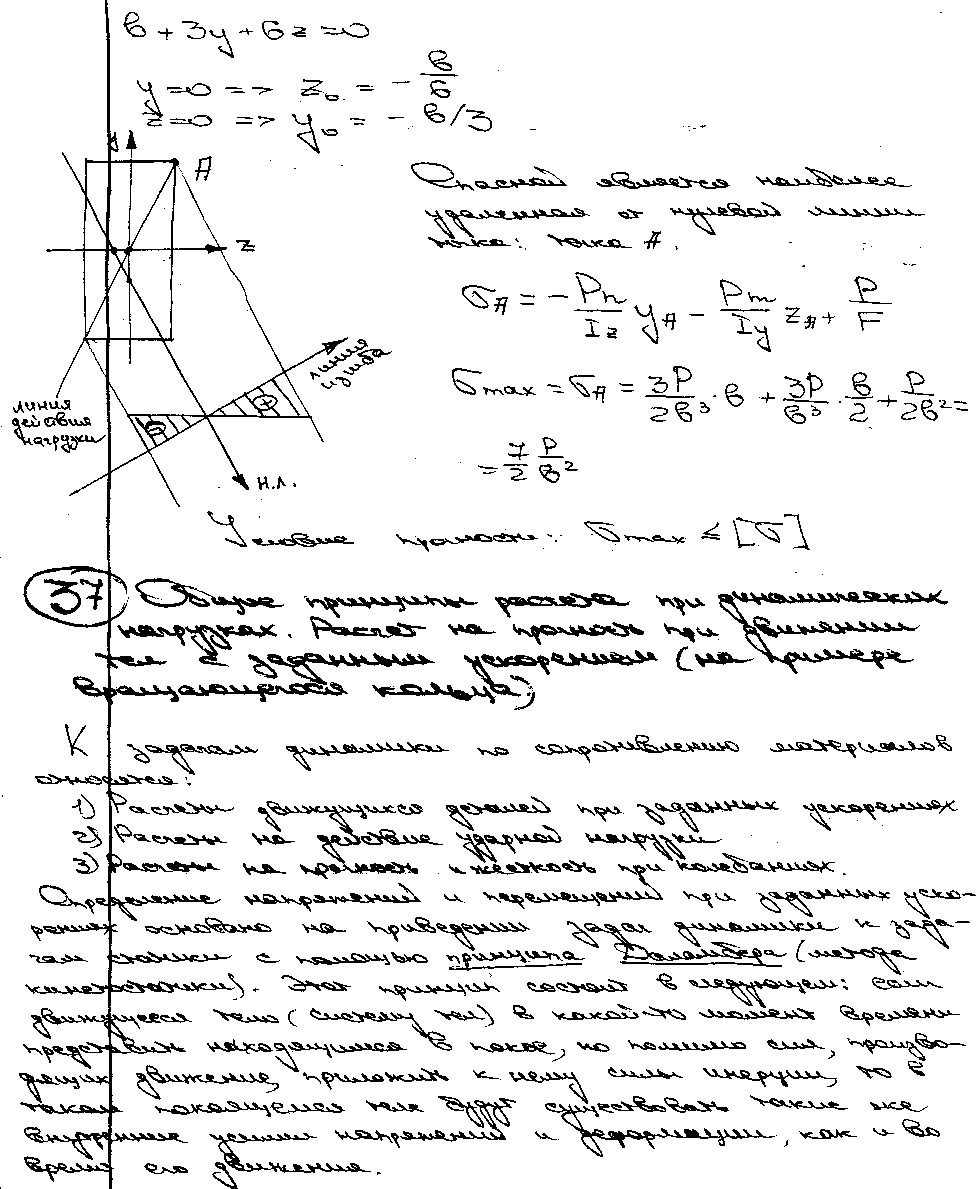 в + 3y + 6z = 0
y=0 => z₀ = - в/6
z=0 => y₀ = - в/3
y
A
z
Опасной является наиболее
удаленная от нулевой линии
точка: точка A.
σ_A = - Pn/I_z y_A - Pm/I_y z_A + P/F
σ_max = σ_A = 3P/2в³ · в + 3P/в³ · в/2 + P/2в² =
= 7/2 P/в²
линия
изгиба
линия
действия
нагрузки
+
−
н.л.
Условие прочности: σ_max ≤ [σ]
37 Общие принципы расчета при динамических
нагрузках. Расчет на прочность при движении
тел с заданным ускорением (на примере
вращающегося кольца)
К задачам динамики по сопротивлению материалов
относятся:
1) Расчеты движущихся деталей при заданных ускорениях
2) Расчеты на действие ударной нагрузки
3) Расчеты на прочность и жесткость при колебаниях.
Определение напряжений и перемещений при заданных уско-
рениях основано на приведении задач динамики к зада-
чам статики с помощью принципа Даламбера (метода
кинетостатики). Этот принцип состоит в следующем: если
движущееся тело (систему тел) в какой-то момент времени
представить находящимся в покое, но помимо сил, произво-
дящих движение, приложить к нему силы инерции, то в
таком покоящемся теле будут существовать такие же
внутренние усилия напряжений и деформации, как и во
время его движения.